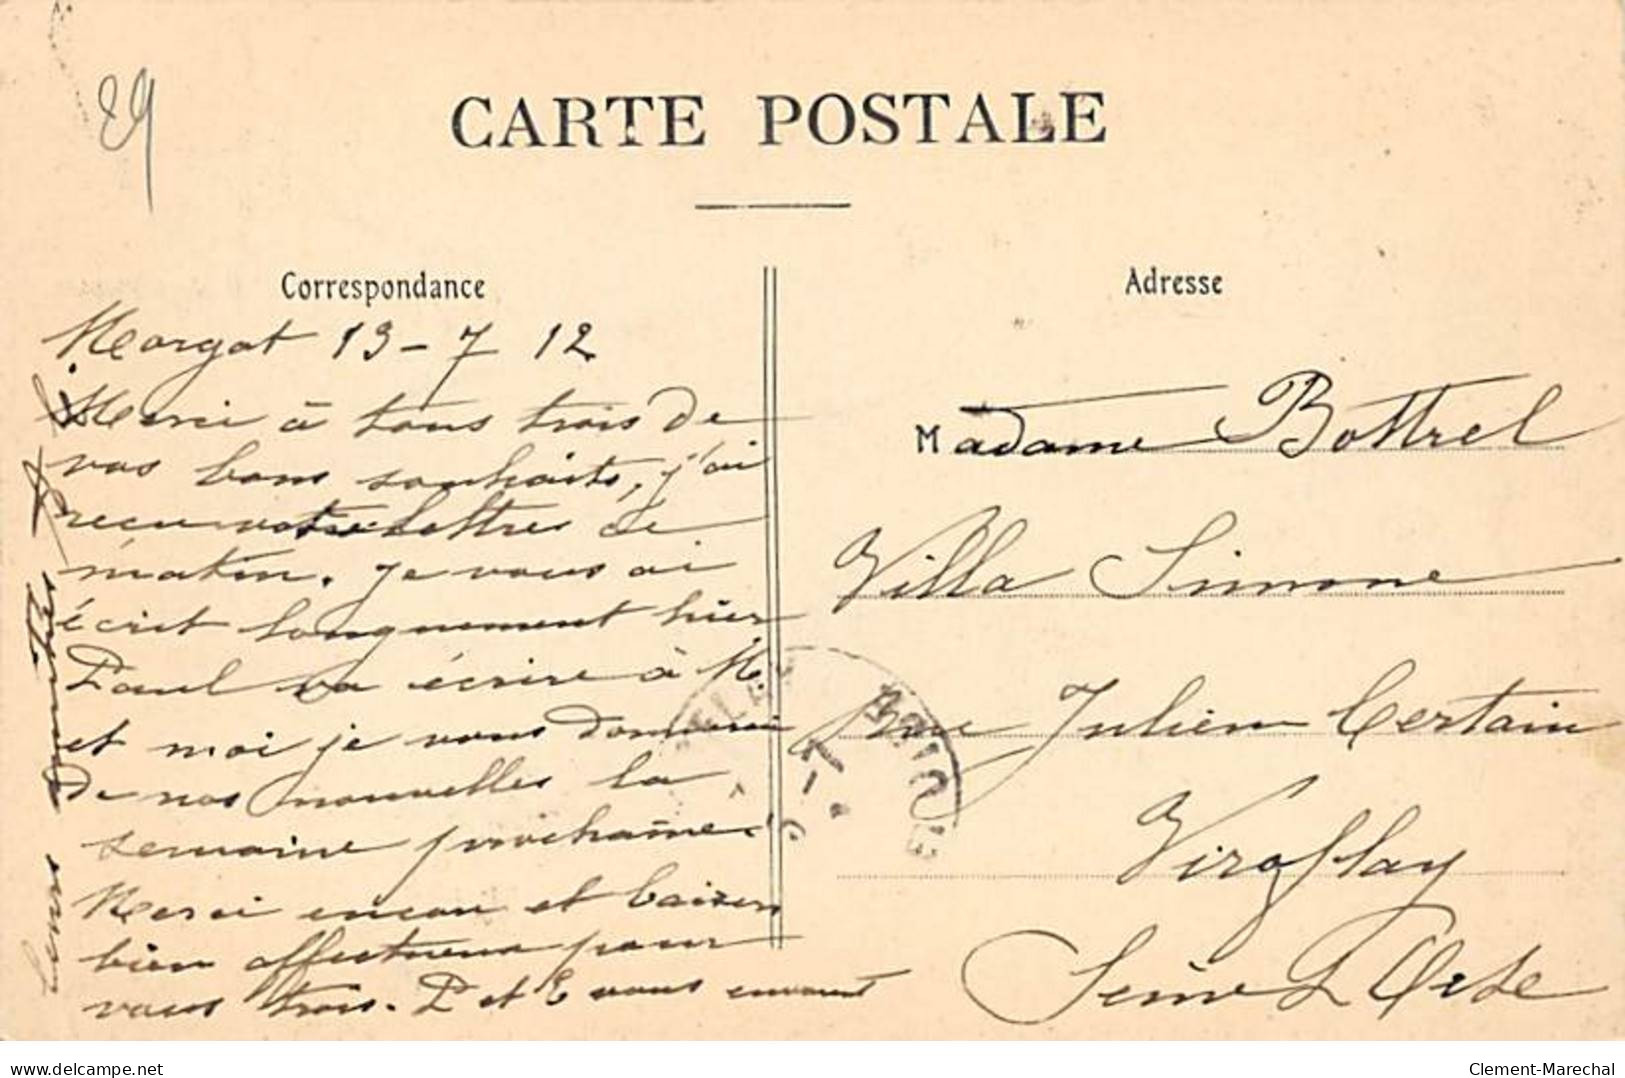 29
CARTE POSTALE
Correspondance
Morgat 13-7 12
Merci à tous trois de
vos bons souhaits, j'ai
reçu votre lettre ce
matin. Je vous ai
écrit longuement hier
Paul va écrire à M.
et moi je vous donnerai
de nos nouvelles la
semaine prochaine.
Merci encore et baisers
bien affectueux pour
vous trois. P et E vous envoient
leurs amitiés
Adresse
Madame Bottrel
Villa Simone
Rue Julien Certain
Viroflay
Seine & Oise
delcampe.net
Clement-Marechal